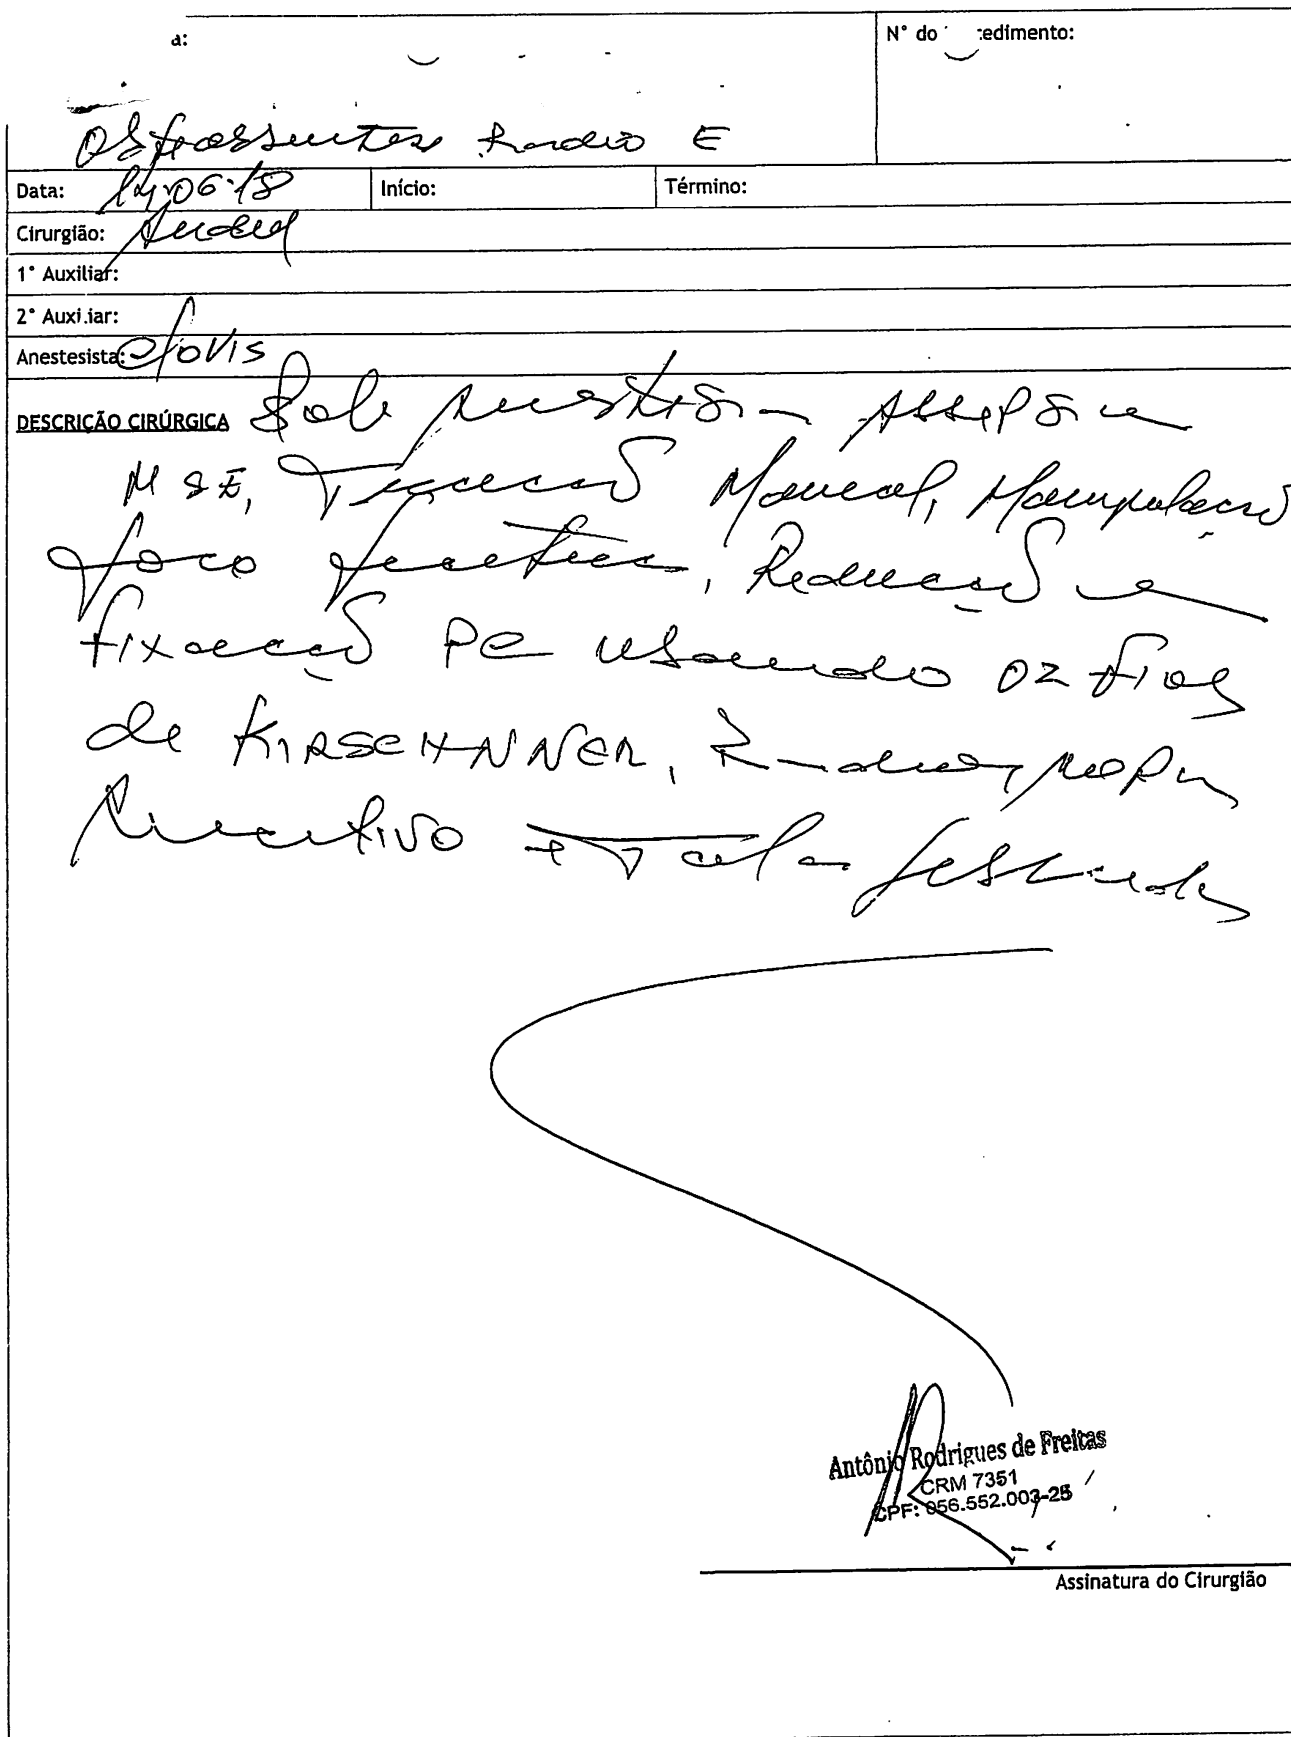 a:
N° do edimento:
Osteossíntese Rádio E
Data: 14.06.18 Início: Término:
Cirurgião:
1° Auxiliar:
2° Auxiliar:
Anestesista: Clovis
DESCRIÇÃO CIRÚRGICA Sob Anestesia Assepsia
MSE, Tração Manual, Manipulação
foco fratura, Redução e
fixação PC usando 02 fios
de KIRSCHNNER,
Curativo + Tala gessada
Antônio Rodrigues de Freitas
CRM 7351
CPF: 056.552.003-25
Assinatura do Cirurgião